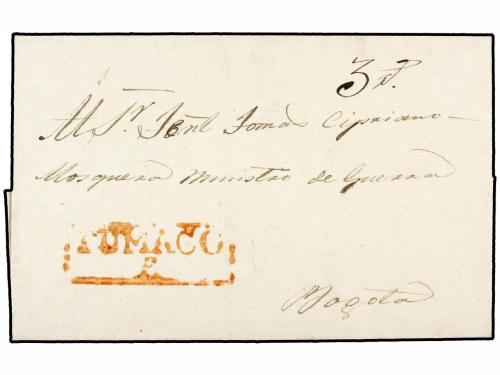 3 rs.
Al Sr. Jenl Tomas Cipriano
Mosquera Ministro de Guerra
TUMACO
F
Bogotá